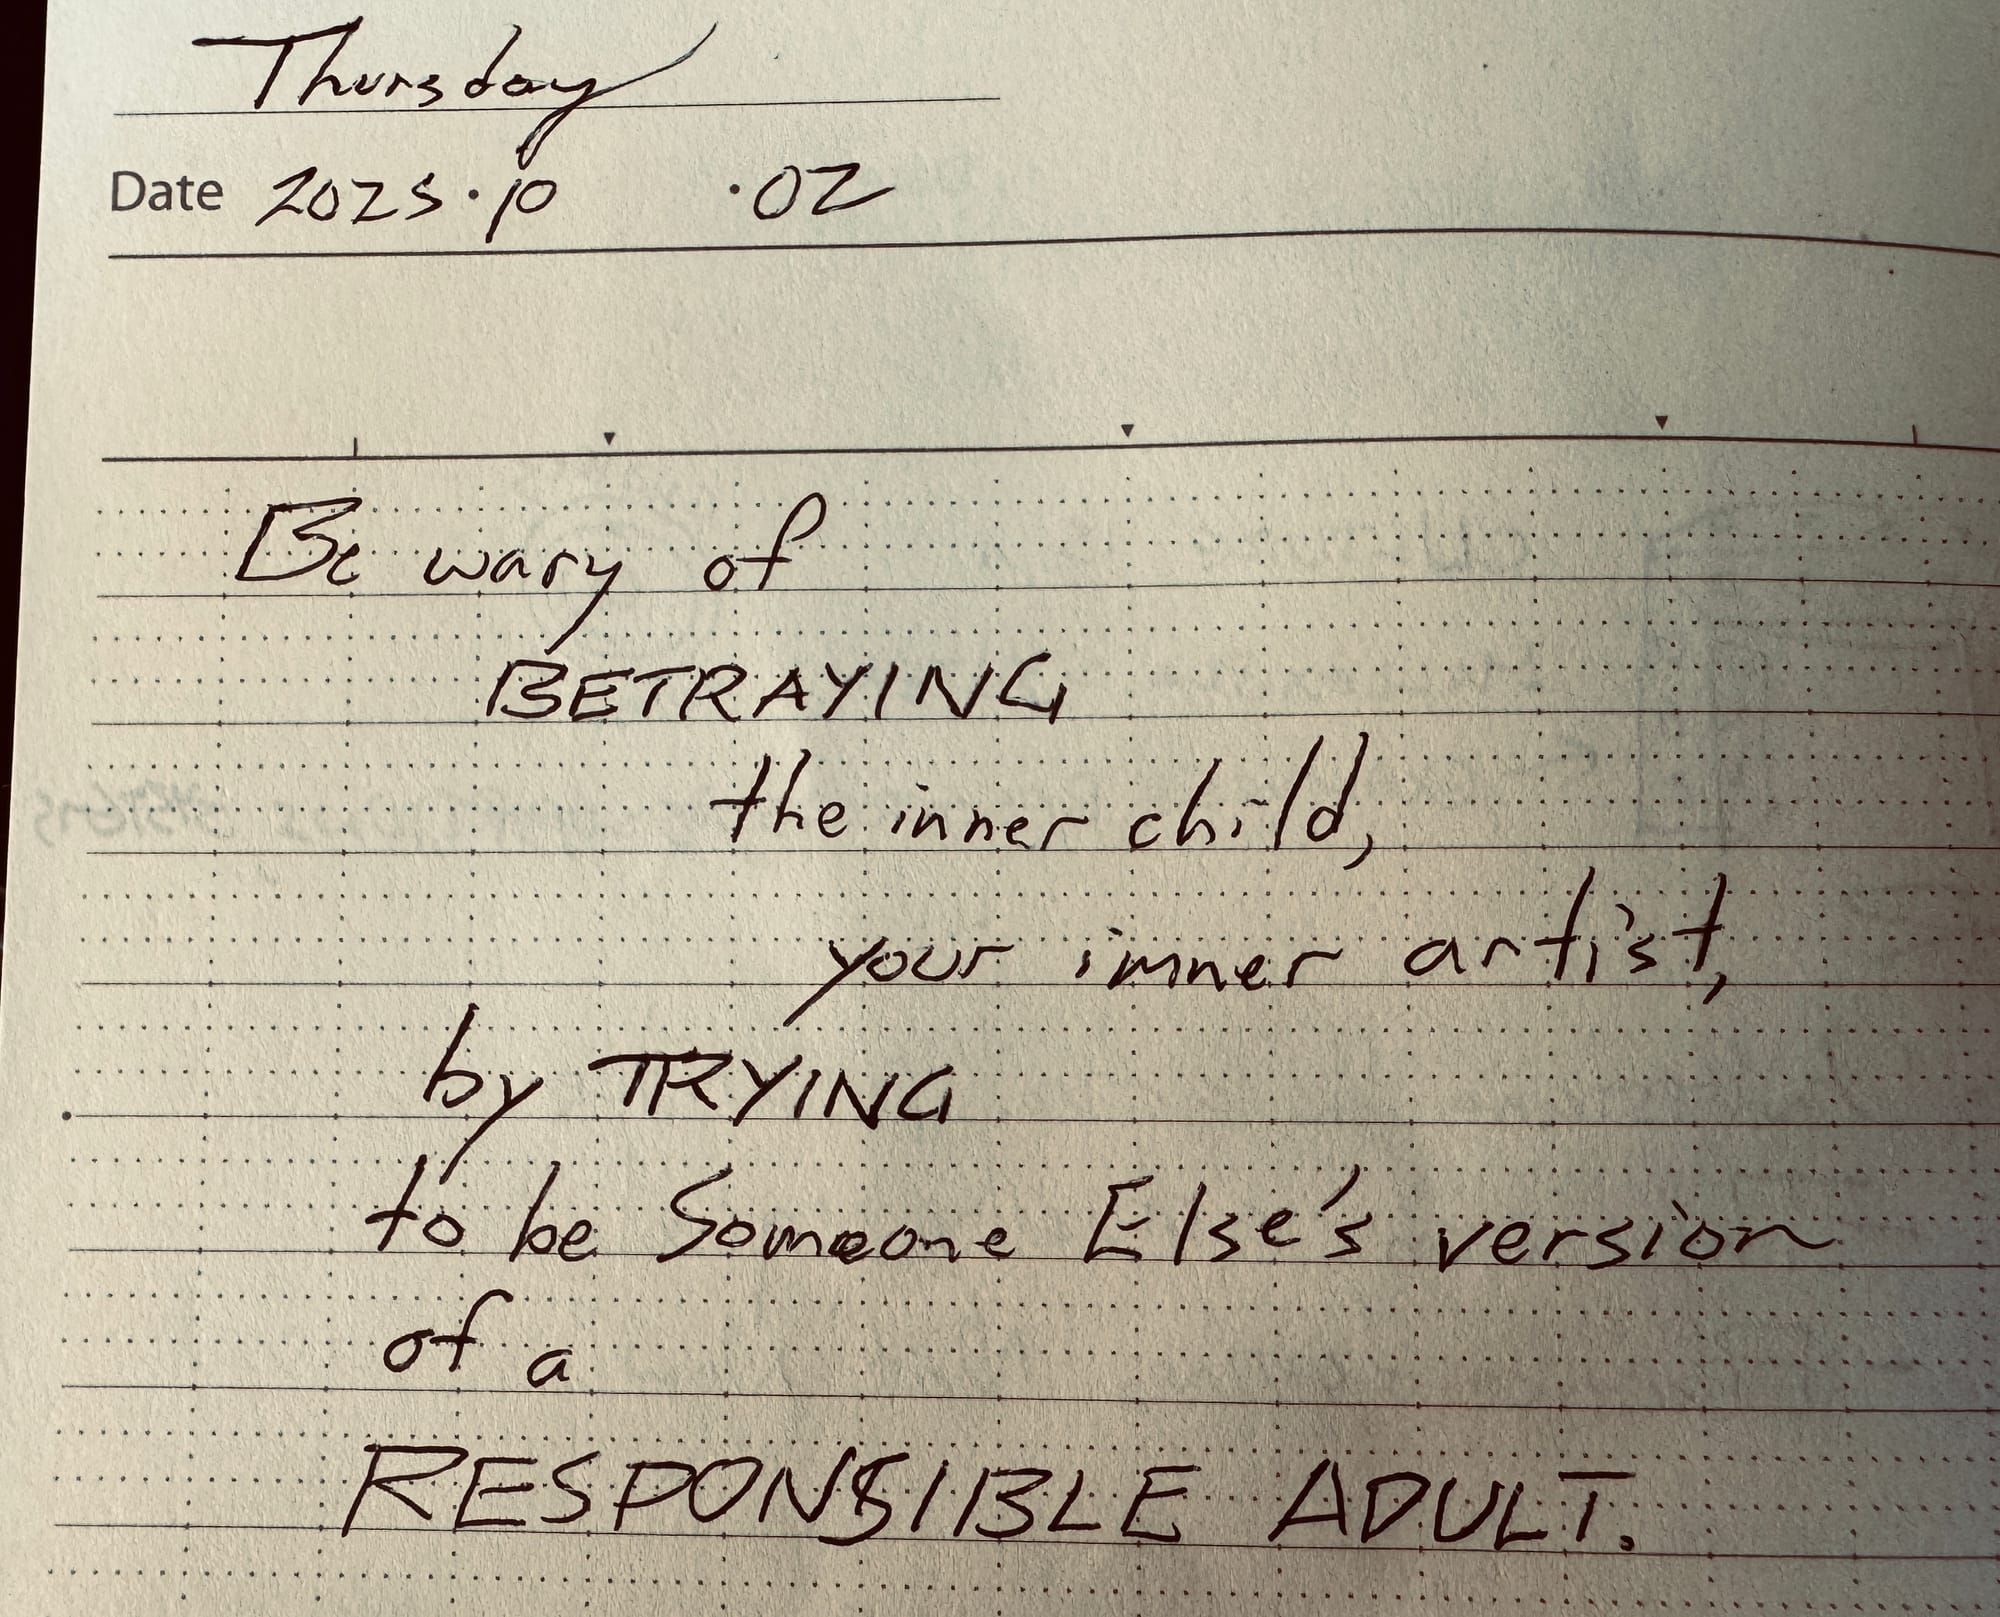 Thursday
Date 2025.10 .02
Be wary of
BETRAYING
the inner child,
your inner artist,
by TRYING
to be Someone Else's version
of a
RESPONSIBLE ADULT.